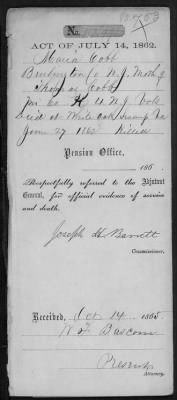 No.
ACT OF JULY 14, 1862.
Maria Cobb
Burlington Co N.J. Moth of
Thomas Cobb
Co H N.J. Vols
died at White Oak Swamp Va
June 27 1862 Killed
Pension Office,
186 .
Respectfully referred to the Adjutant
General, for official evidence of service
and death.
Joseph H Barrett
Commissioner.
Received, Oct 14 1865
Bascom
Present
Attorney.